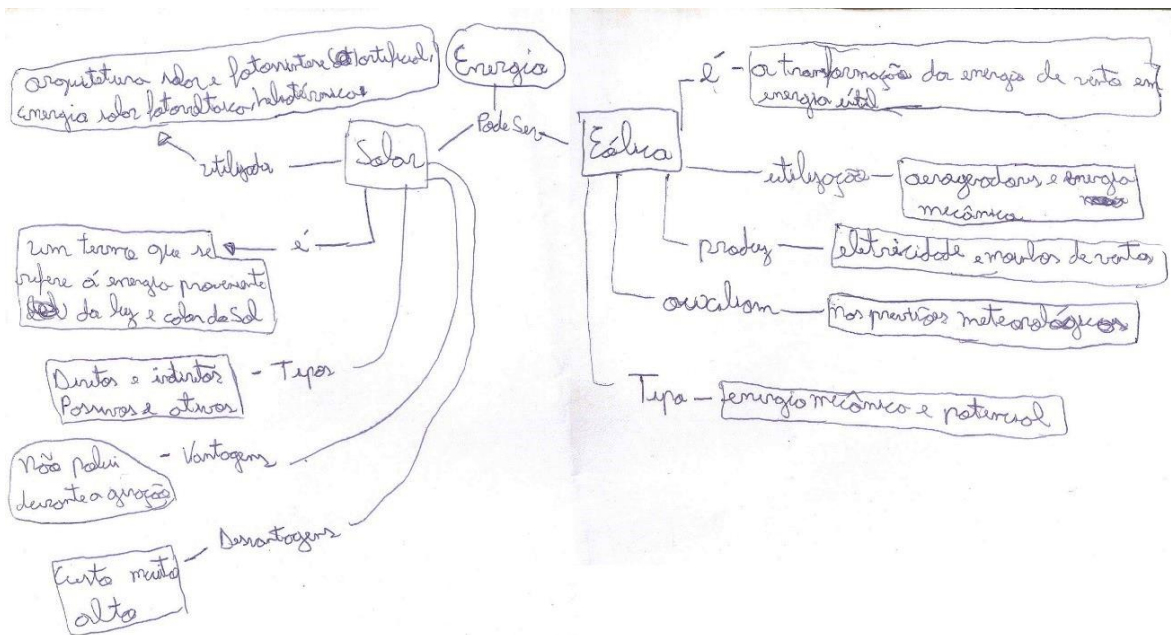 Energia
Pode Ser
Solar
utilizada
arquitetura solar e fotossintese artificial,
energia solar fotovoltaica, heliotérmica
é
um termo que se
refere á energia proveniente
da luz e calor do Sol
Tipos
Diretos e indiretos
Passivos e ativos
Vantagens
Não polui
durante a geração
Desvantagens
Custo muito
alto
Eólica
é
a transformação da energia de vento em
energia útil
utilização
aerogeradores e energia
mecânica
produz
eletricidade e moinhos de vento
auxiliam
nas previsões meteorológicas
Tipo
energia mecânica e potencial